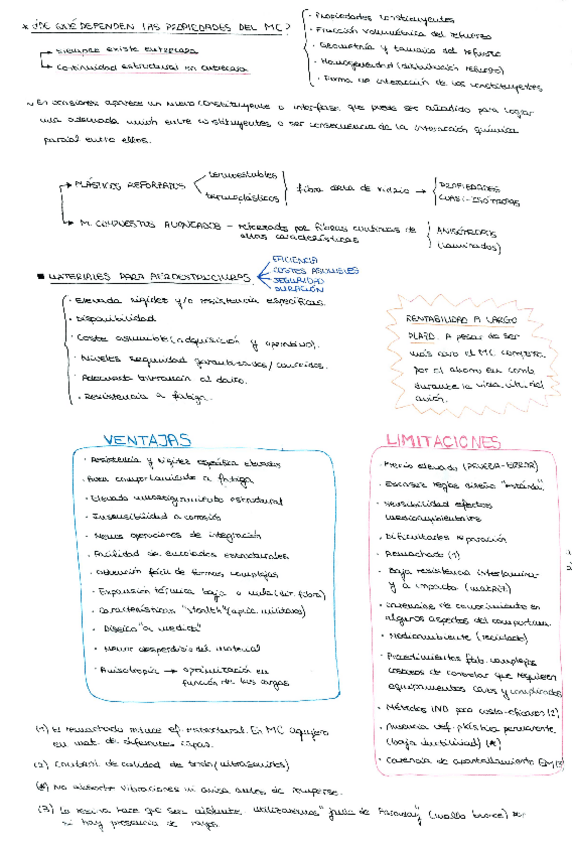 * ¿DE QUÉ DEPENDEN LAS PROPIEDADES DEL MC?
→ Siempre existe entrecara
→ Continuidad estructural en entrecara
· Propiedades constituyentes
· Fracción volumétrica del refuerzo
· Geometría y tamaño del refuerzo
· Homogeneidad (distribución refuerzo)
· Forma de interacción de los constituyentes
~ En ocasiones aparece un nuevo constituyente o interfase que puede ser añadido para lograr
una adecuada unión entre constituyentes o ser consecuencia de la interacción química
parcial entre ellos.
→ PLÁSTICOS REFORZADOS
termoestables
termoplásticos
fibra corta de vidrio →
PROPIEDADES
CUASI-ISÓTROPAS
→ M. COMPUESTOS AVANZADOS - reforzados por fibras continuas de
altas características
ANISÓTROPOS
(laminados)
■ MATERIALES PARA AEROESTRUCTURAS
EFICIENCIA
COSTES ASUMIBLES
SEGURIDAD
DURACIÓN
· Elevada rigidez y/o resistencia específicas.
· Disponibilidad
· Costes asumibles (adquisición y operativo).
· Niveles seguridad garantizados/conocidos.
· Adecuada tolerancia al daño.
· Resistencia a fatiga.
RENTABILIDAD A LARGO
PLAZO. A pesar de ser
más caro el MC compensa
por el ahorro en comb.
durante la vida útil del
avión.
VENTAJAS
· Resistencia y rigidez específica elevadas
· Buen comportamiento a fatiga
· Elevado amortiguamiento estructural
· Insensibilidad a corrosión
· Menos operaciones de integración
· Facilidad de encolados estructurales
· Obtención fácil de formas complejas
· Expansión térmica baja o nula (dir. fibra)
· Características "stealth" (aplic. militares)
· Diseño "a medida"
· Menor desperdicio del material
· Anisotropía → optimización en
función de las cargas
LIMITACIONES
· Precio elevado (PRUEBA-ERROR)
· Escasas reglas diseño "estándar".
· Sensibilidad efectos
medioambientales
· Dificultades reparación
· Remachado (1)
· Baja resistencia interlaminar
y a impacto (matriz)
· Carencias de conocimiento en
algunos aspectos del comportam.
· Medioambiente (reciclado)
· Procedimientos fab. complejos
costosos de controlar que requieren
equipamientos caros y complicados
· Métodos IND poco costo-eficaces (2)
· Ausencia def. plástica permanente
(baja ductilidad) (*)
· Carencia de apantallamiento EM (3)
(1) El remachado reduce ef. estructural. En MC agujero
en mat. de diferentes capas.
(2) Control de calidad de todo (ultrasonidos)
(*) No absorbe vibraciones ni avisa antes de romperse.
(3) La resina hace que sea aislante, utilizaremos "jaula de Faraday" (malla bronce)
si hay presencia de rayos.